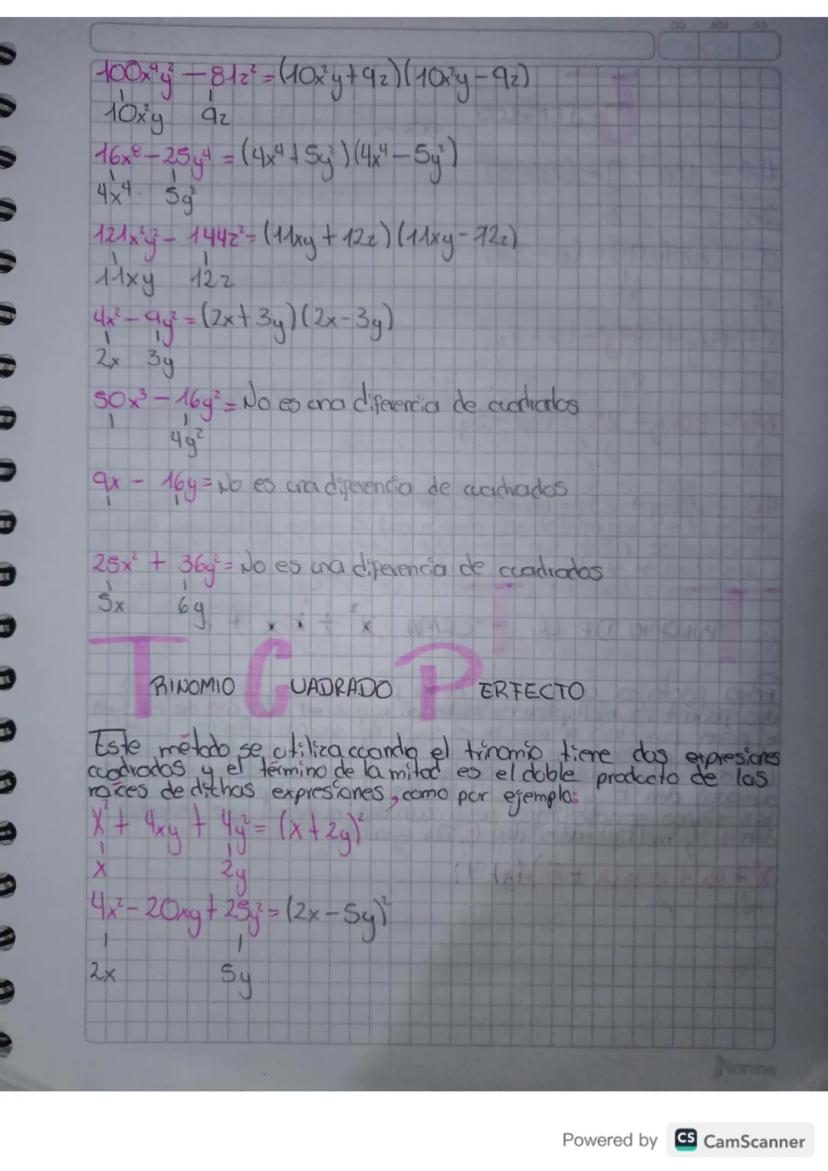 DD MM AA
100x⁴y² - 81z² = (10x²y + 9z)(10x²y - 9z)
10x²y 9z
16x⁸ - 25y⁴ = (4x⁴ + 5y²)(4x⁴ - 5y²)
4x⁴ 5y²
121x²y² - 144z² = (11xy + 12z)(11xy - 12z)
11xy 12z
4x² - 9y² = (2x + 3y)(2x - 3y)
2x 3y
50x³ - 16y² = No es una diferencia de cuadrados
4y²
9x - 16y = No es una diferencia de cuadrados
25x² + 36y² = No es una diferencia de cuadrados
5x 6y
TRINOMIO CUADRADO PERFECTO
Este método se utiliza cuando el trinomio tiene dos expresiones
cuadrados y el término de la mitad es el doble producto de las
raíces de dichas expresiones, como por ejemplo:
x² + 4xy + 4y² = (x + 2y)²
x 2y
4x² - 20xy + 25y² = (2x - 5y)²
2x 5y
Norma
Powered by CS CamScanner